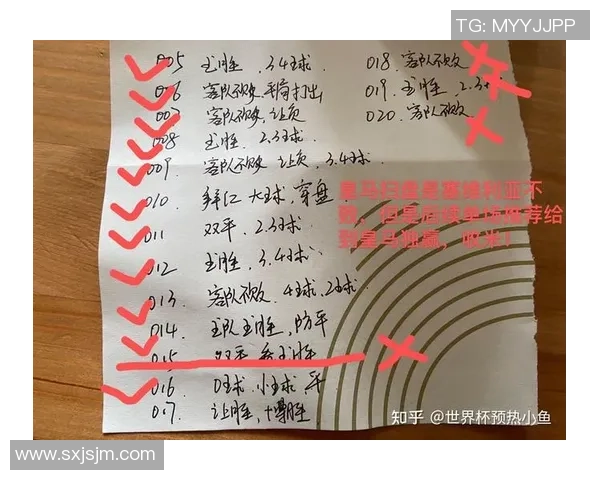 TG: MYYJJPP
005 主胜 . 3.4球 .
006 客队不败 . 平局打出
007 客队不败 . 让负
008 主胜 . 2.3球 .
009. 客队不败 让负 . 3.4球 .
010. 拜仁 大球 , 穿盘
011 双平 . 2.3球 .
012 主胜 . 3.4球 .
013. 客队不败 . 4球 . 2球 .
014. 主队主胜 , 防平
015. 双平
016. 0球 . 小球 . 平
017. 让胜 ,
018 . 客队不败
019. 主胜 . 2.3
020 . 客队不败 .
皇马扫盘
到皇马独赢，收米！
知乎 @世界杯预热小鱼
www.sxjsjm.com